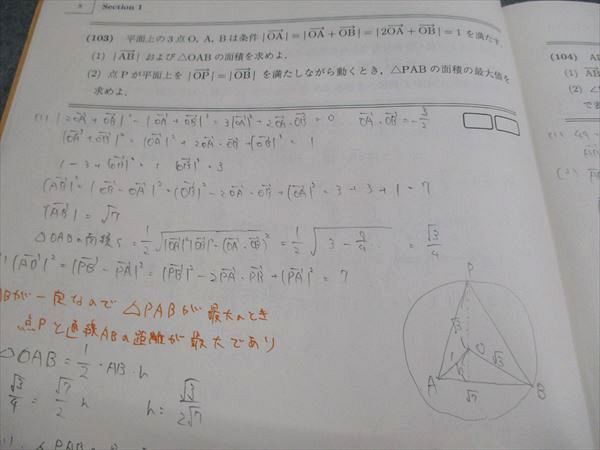 8 Section 1
(103) 平面上の3点O, A, Bは条件 |OA| = |OA + OB| = |2OA + OB| = 1 を満たす.
(1) |AB| および△OABの面積を求めよ.
(2) 点Pが平面上を |OP| = |OB| を満たしながら動くとき, △PABの面積の最大値を
求めよ.
(1) |2OA + OB|² - |OA + OB|² = 3|OA|² + 2OA・OB = 0 OA・OB = -3/2
|OA + OB|² = |OA|² + 2OA・OB + |OB|² = 1
1 - 3 + |OB|² = 1 |OB|² = 3
|AB|² = |OB - OA|² = |OB|² - 2OA・OB + |OA|² = 3 + 3 + 1 = 7
|AB| = √7
△OABの面積 S = 1/2 √|OA|²|OB|² - (OA・OB)² = 1/2 √3 - 9/4 = √3/4
) |AB|² = |PB - PA|² = |PB|² - 2PA・PB + |PA|² = 7
ABが一定なので △PABが最大のとき
点Pと直線ABの距離が最大であり
△OAB = 1/2・AB・h
√3/4 = √7/2 h h = √3/2√7
P
√3
O
1
h
√3
A
√7
B
(104)
(1)
(2)
(1) 49
(2)